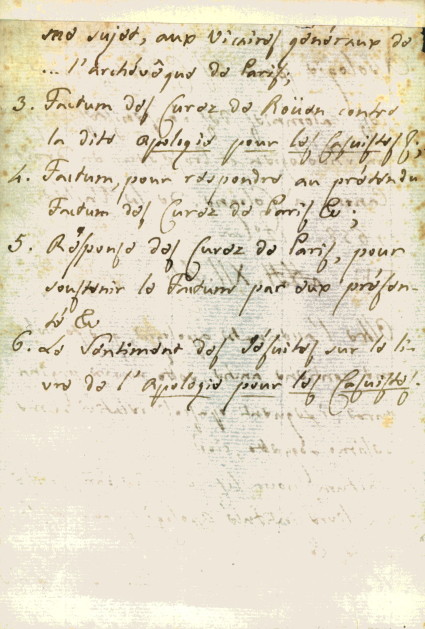 me sujet, aux Vicaires généraux de
... l'Archévêque de Paris;
3. Factum des Curez de Roüen contre
la dite Apologie pour les Casuistes &;
4. Factum, pour respondre au prétendu
Factum des Curez de Paris, &c;
5. Résponse des Curez de Paris, pour
soustenir le Factum par eux présen-
té &c
6. Le Sentiment des Jésuites sur le li-
vre de l'Apologie pour les Casuistes.